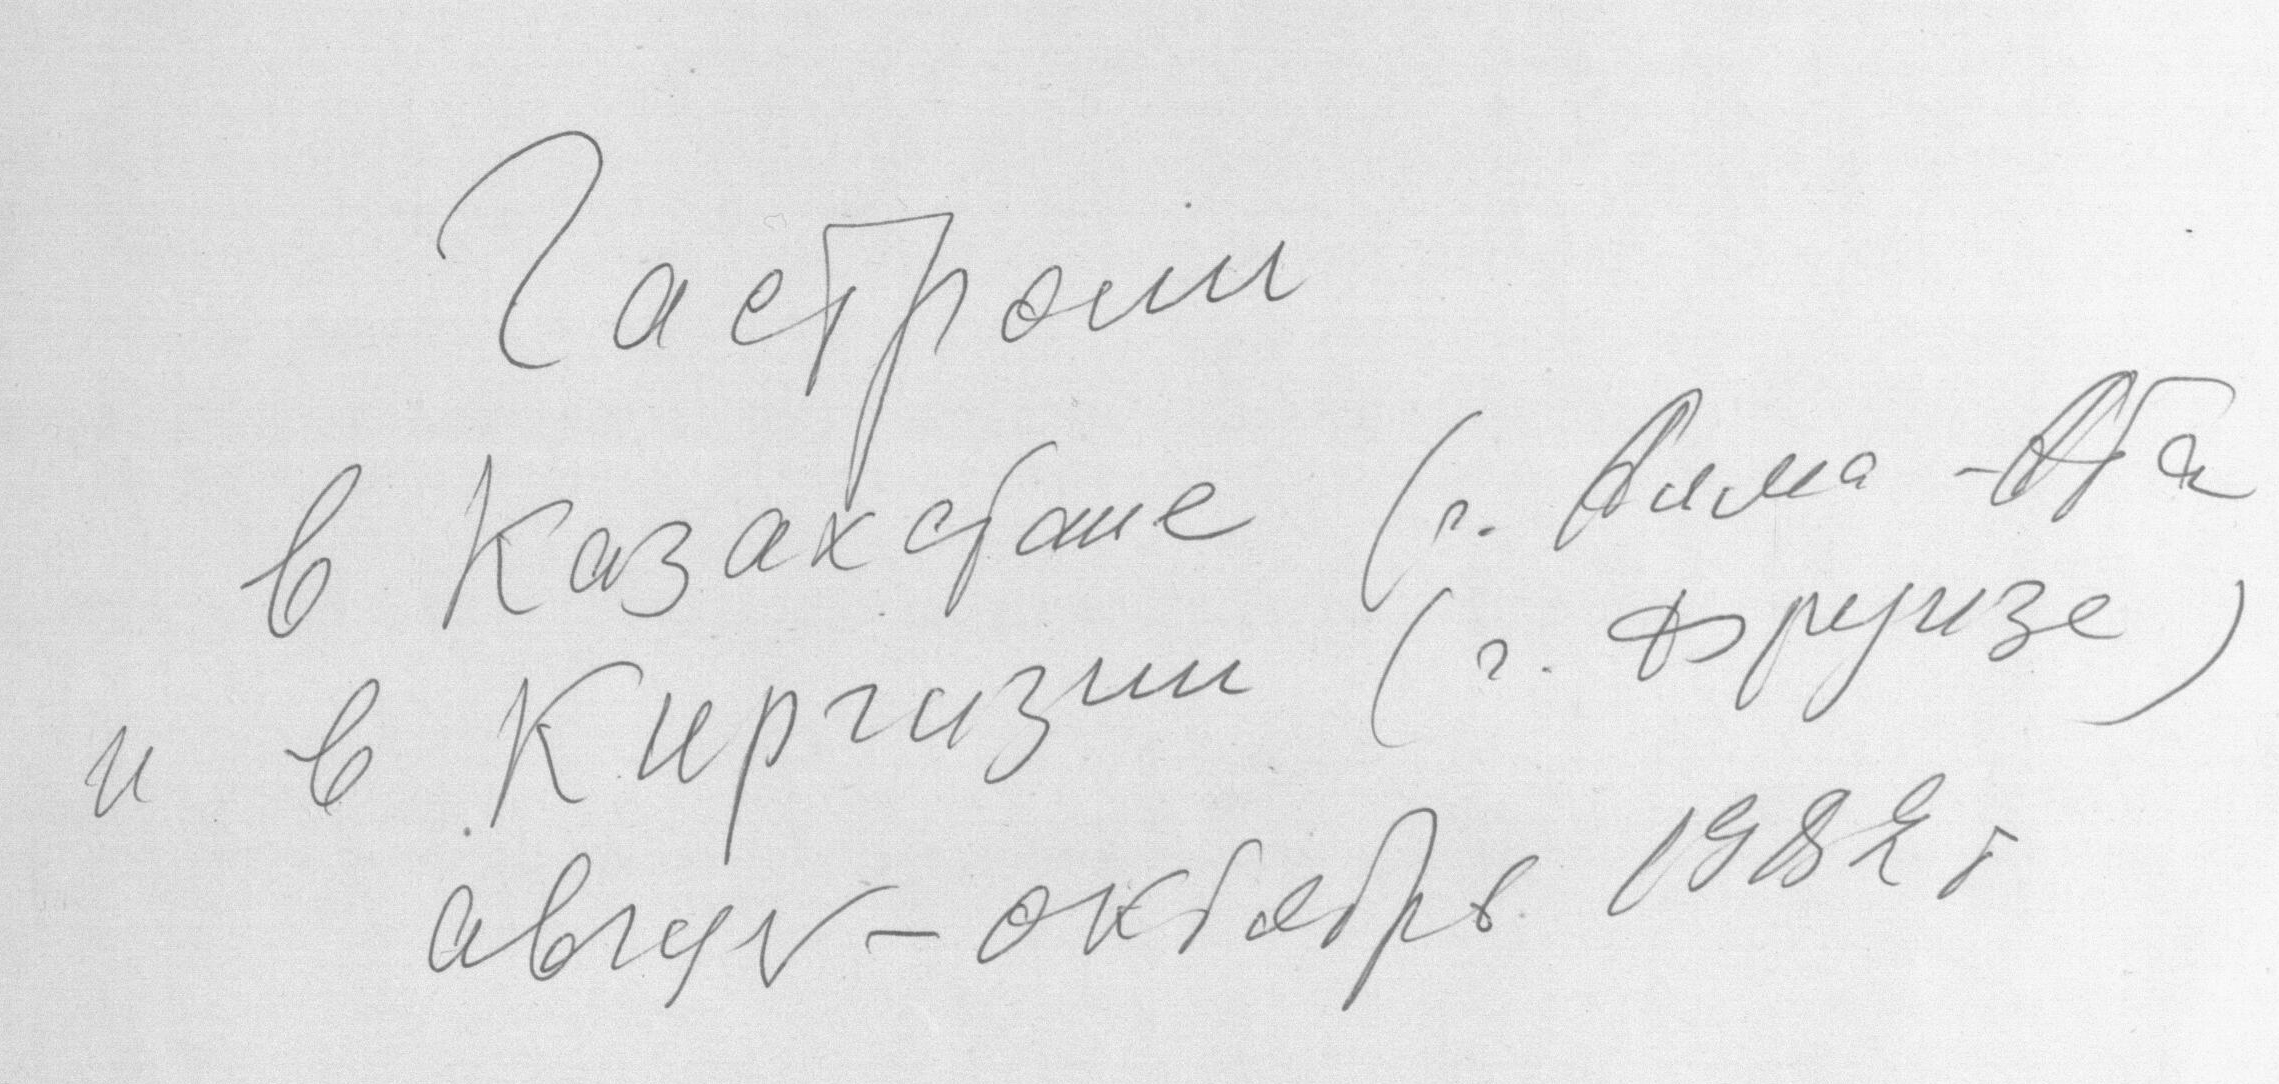 Гастроли
в Казахстане (г. Алма-Ата
и в Киргизии (г. Фрунзе)
август-октябрь 1982 г